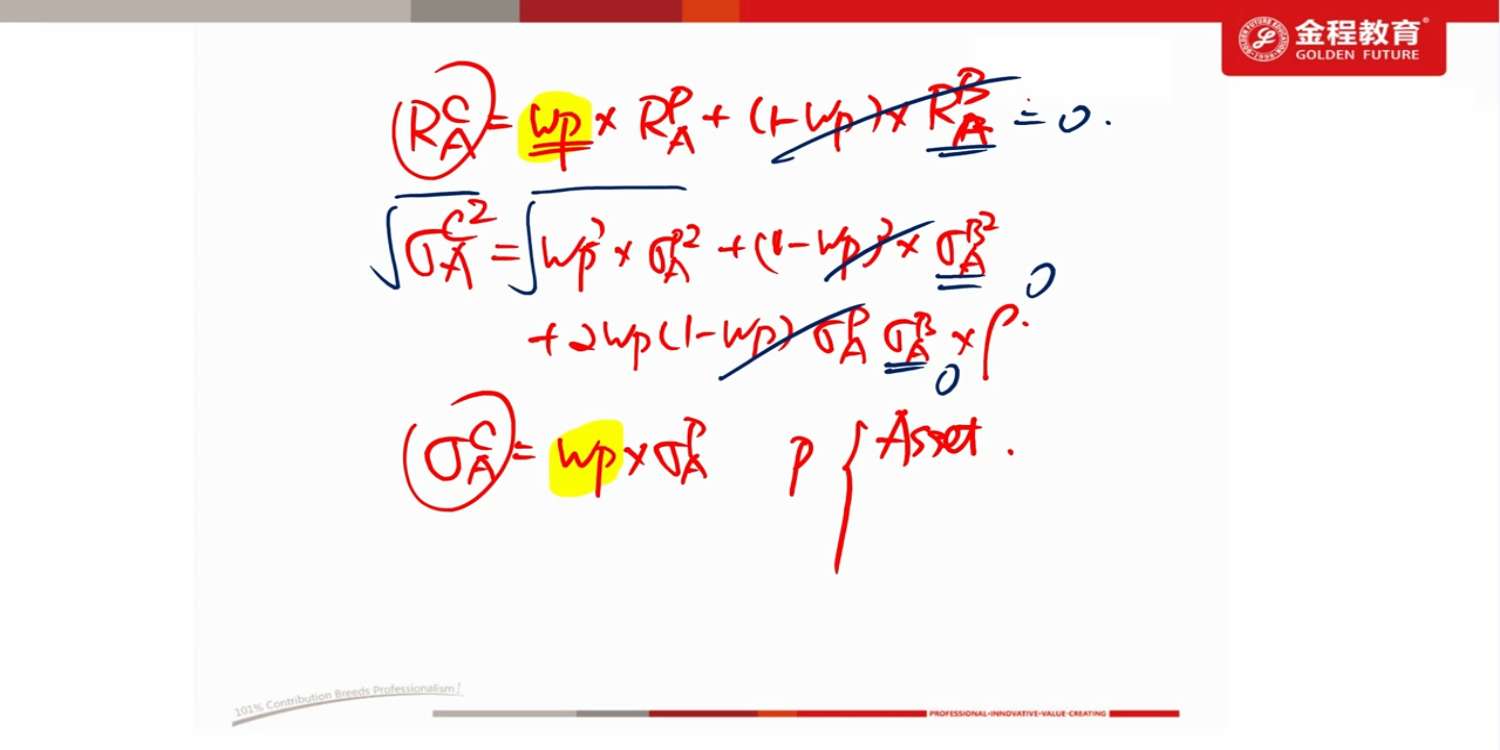 金程教育®
GOLDEN FUTURE
R_A^C = wp × R_A^P + (1-wp) × R_A^B = 0.
√σ_A^C² = √wp² × σ_A^P² + (1-wp)² × σ_A^B² 0
+ 2wp(1-wp) σ_A^P σ_A^B × ρ. 0
σ_A^C = wp × σ_A^P P { Asset.
101% Contribution Breeds Professionalism!
PROFESSIONAL·INNOVATIVE·VALUE-CREATING